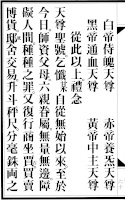 白帝侍魄天尊　赤帝養炁天尊
黑帝通血天尊　黃帝中主天尊
從此以上禮念
天尊聖號乞懺某自從無始以來至於
今日師資父母六親眷屬無量無邊障
礙人間種種之罪又復行商坐賈買賣
博貨邸舍交易升斗秤尺分毫銖兩之